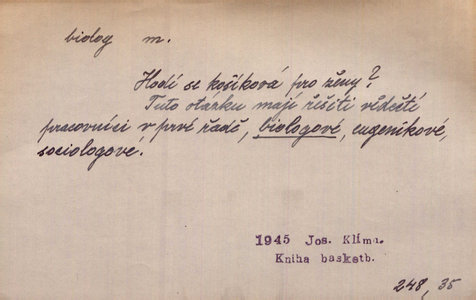 biolog m.
Hodí se košíková pro ženy?
Tuto otázku mají řešiti vědečtí
pracovníci v prvé řadě, biologové, eugenikové,
sociologové.
1945 Jos. Klíma.
Kniha basketb.
248, 35